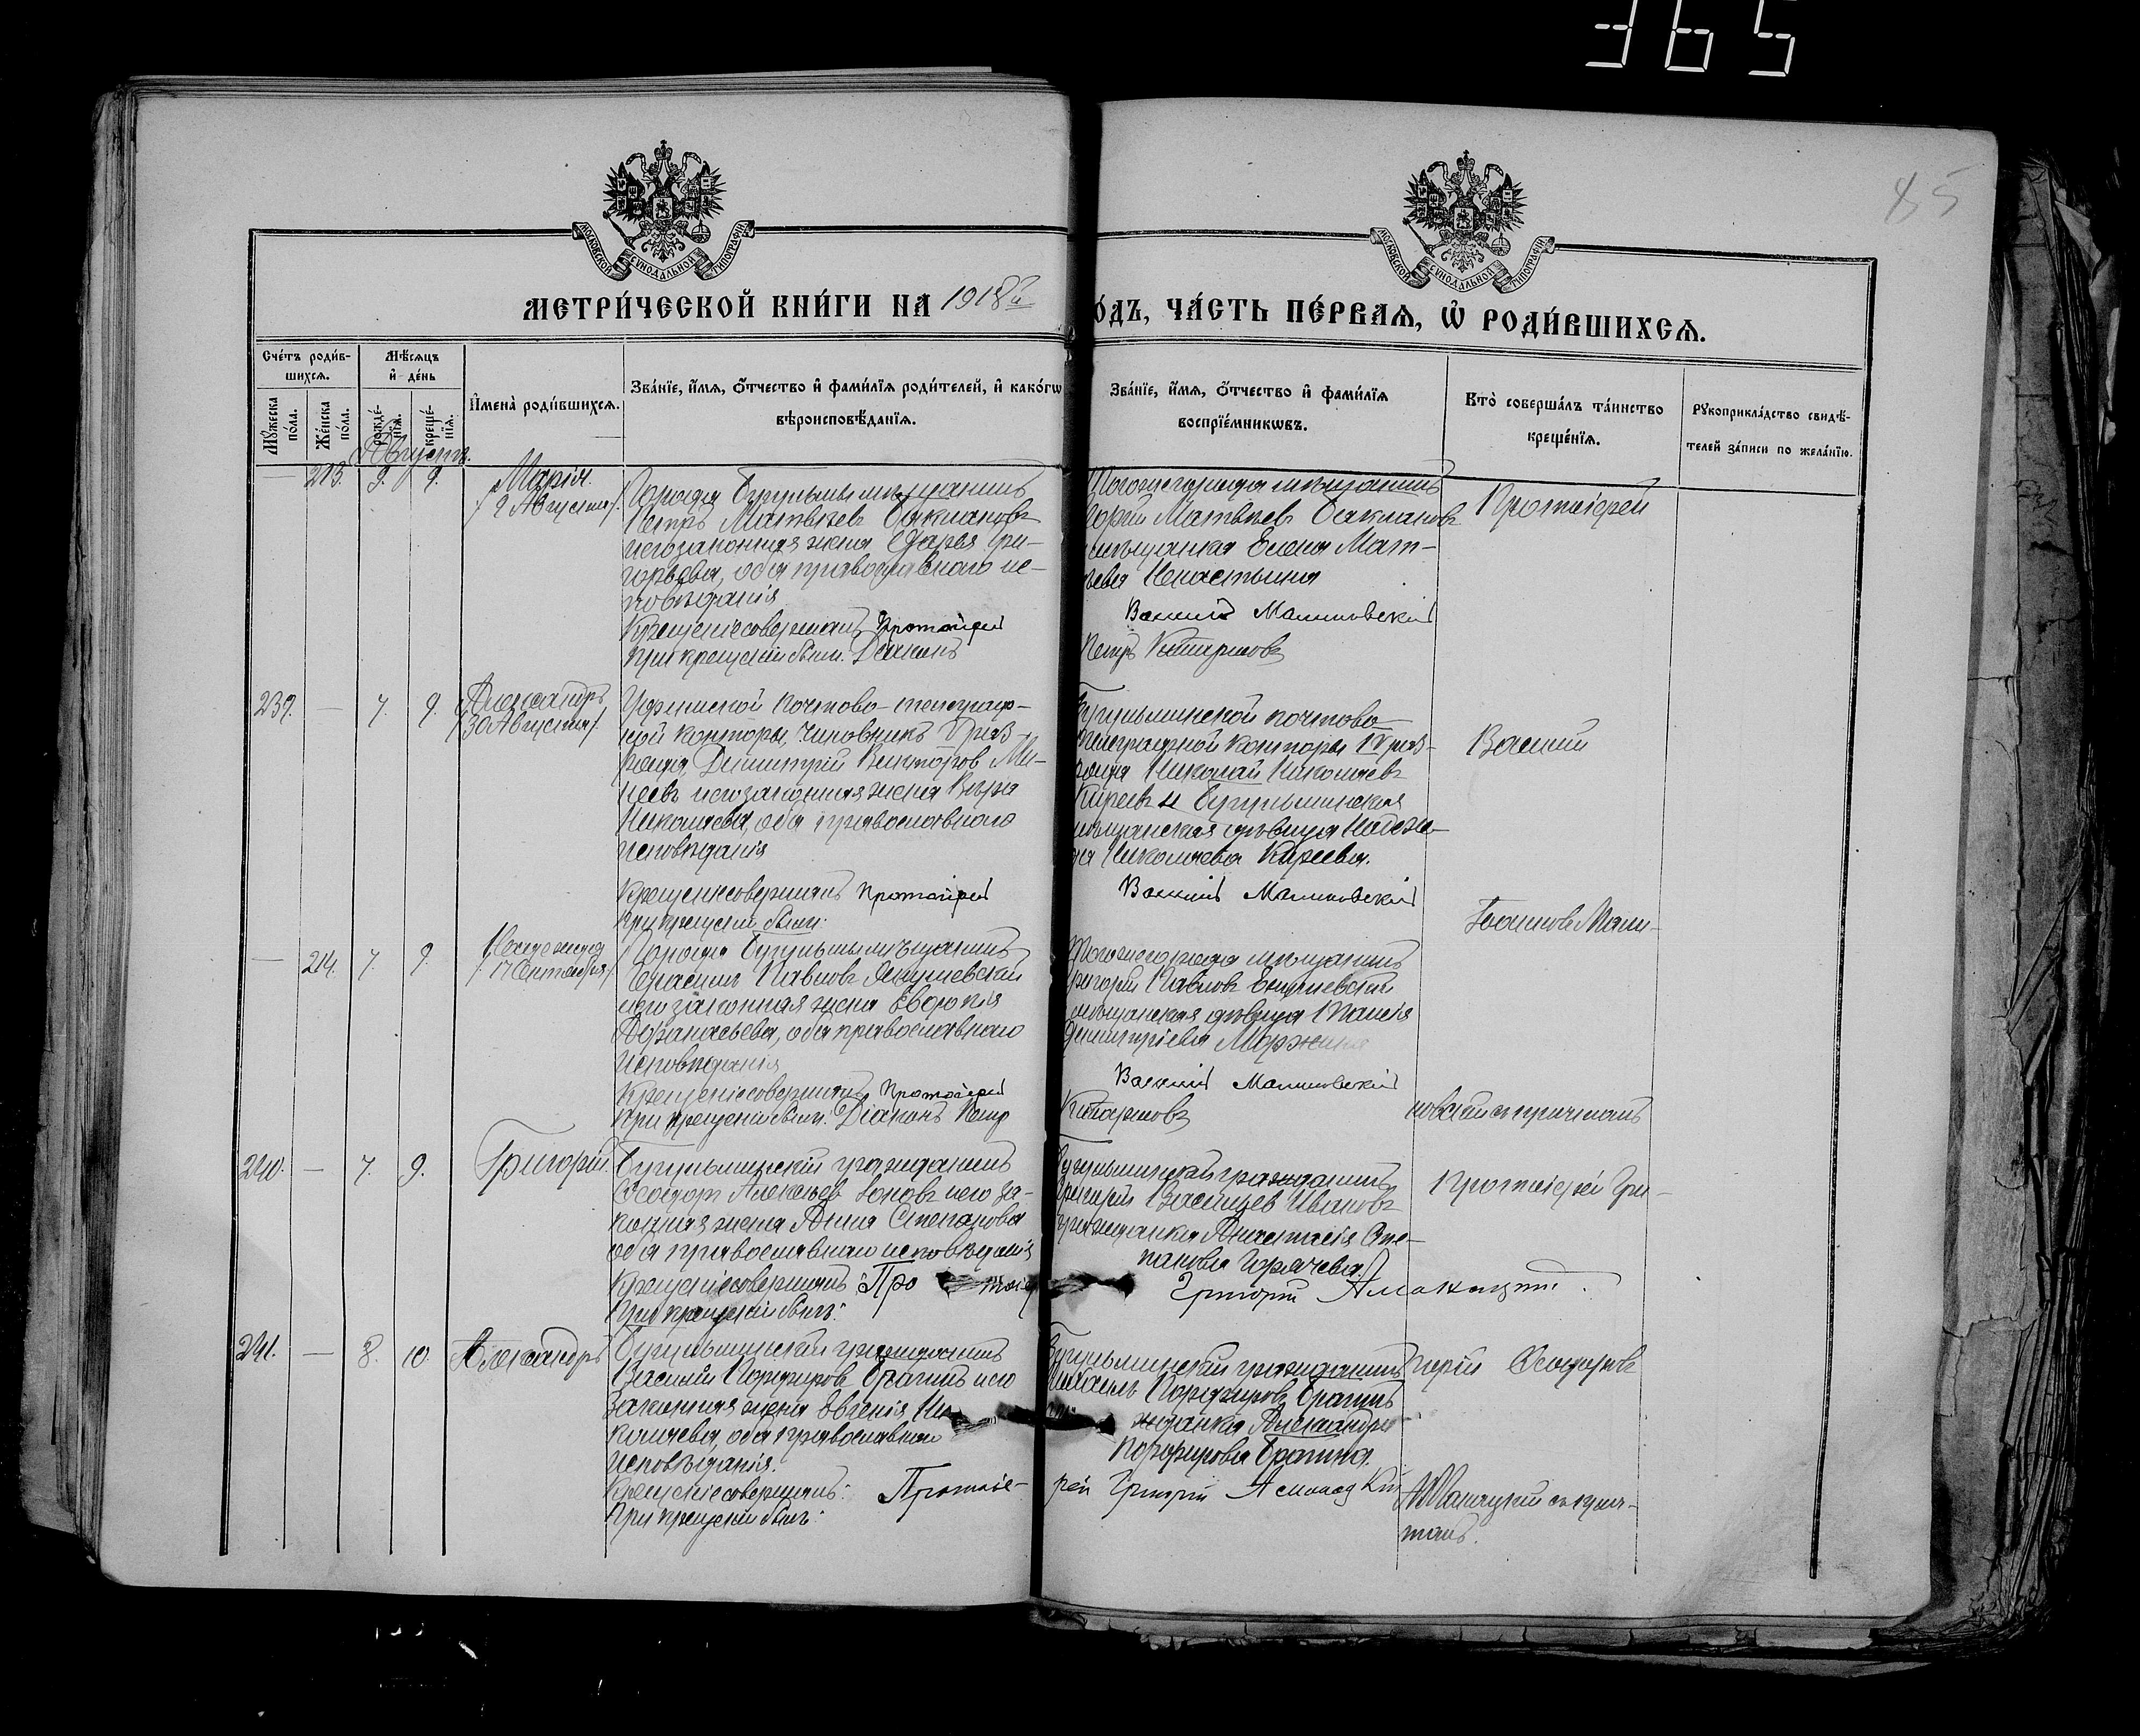 365
85
МОСКОВСКОЙ СѴНОДАЛЬНОЙ ТИПОГРАФІИ
МОСКОВСКОЙ СѴНОДАЛЬНОЙ ТИПОГРАФІИ
МЕТРИ́ЧЕСКОЙ КНИ́ГИ НА 1918й
О́ДЪ, ЧА́СТЬ ПЕ́РВАѦ, Ѡ РОДИ́ВШИХСѦ.
Сче́тъ роди́вшихсѧ.
Мѣ́сѧцъ и де́нь
Мꙋ́жеска по́ла.
Же́нска по́ла.
рожде́нїѧ.
креще́нїѧ.
И҆мена̀ роди́вшихсѧ.
Зва́нїе, и҆́мѧ, ѻ҆́тчество и҆ фами́лїѧ роди́телей, и҆ како́гѡ
вѣроисповѣ́данїѧ.
Зва́нїе, и҆́мѧ, ѻ҆́тчество и҆ фами́лїѧ
воспрїе́мникѡвъ.
Кто̀ соверша́лъ та́инство
креще́нїѧ.
Рꙋкоприкла́дство свидѣ́-
телей за́писи по жела́нїю.
Августъ.
— 213. 9. 9.
Марія
/9 Августа/.
Города Бугульмы мѣщанинъ
Петръ Матвѣевъ Бакланов
его законная жена Дарья Гри-
горьева, оба православнаго ис-
повѣданія
Крещеніе совершалъ Протоіерей
При крещеніи былъ. Діаконъ
Тогоже города мѣщанинъ
Матвѣевъ Баклановъ
мѣщанка Елена Мат-
вѣева
Василій Малиновскій
Петръ
Протоіерей
239. — 7. 9.
Александръ
/30 Августа/.
Уфимской почтово-телеграф-
ной конторы, чиновникъ V раз-
ряда Димитрій Викторов Ми-
неевъ его законная жена Вѣра
Николаева, оба православнаго
исповѣданія
Крещеніе совершалъ Протоіерей
При крещеніи былъ:
Бугульминской почтово-
телеграфной конторы IV раз-
ряда Николай Николаевъ
Киреевъ и Бугульминская
мѣщанская дѣвица Надеж-
да Николаева Киреева.
Василій Малиновскій
Василій
— 214. 7. 9.
Надежда
/17 Сентября/.
Города Бугульмы мѣщанинъ
Павловъ
его законная жена
Афанасьева, оба православнаго
исповѣданія
Крещеніе совершалъ Протоіерей
При крещеніи былъ: Діаконъ Петр
Тогоже города мѣщанинъ
Григорій Павловъ
мѣщанская дѣвица Таисія
Димитріева
Василій Малиновскій
Мали-
новскій съ причтомъ
240. — 7. 9.
Григорій.
Бугульминскій гражданинъ
Ѳеодоръ Алексѣев его за-
конная жена Анна Степанова
оба православнаго исповѣданія
Крещеніе совершалъ: Протоіе
При крещеніи былъ:
Бугульминскій гражданинъ
Григорій Васильев Ивановъ
гражданка Анастасія Сте-
панова Горячева.
Григорій
Протоіерей Гри-
241. — 8. 10.
Александръ
Бугульминскій гражданинъ
Василій Порфировъ Брагинъ его
законная жена Евгенія Ни-
колаева, оба православнаго
исповѣданія.
Крещеніе совершалъ: Протоіе-
При крещеніи былъ:
Бугульминскій гражданинъ
Михаилъ Порфировъ Брагинъ
жданка Александра
Порфирова Брагина.
рей Григорій
горій
съ прич-
томъ.